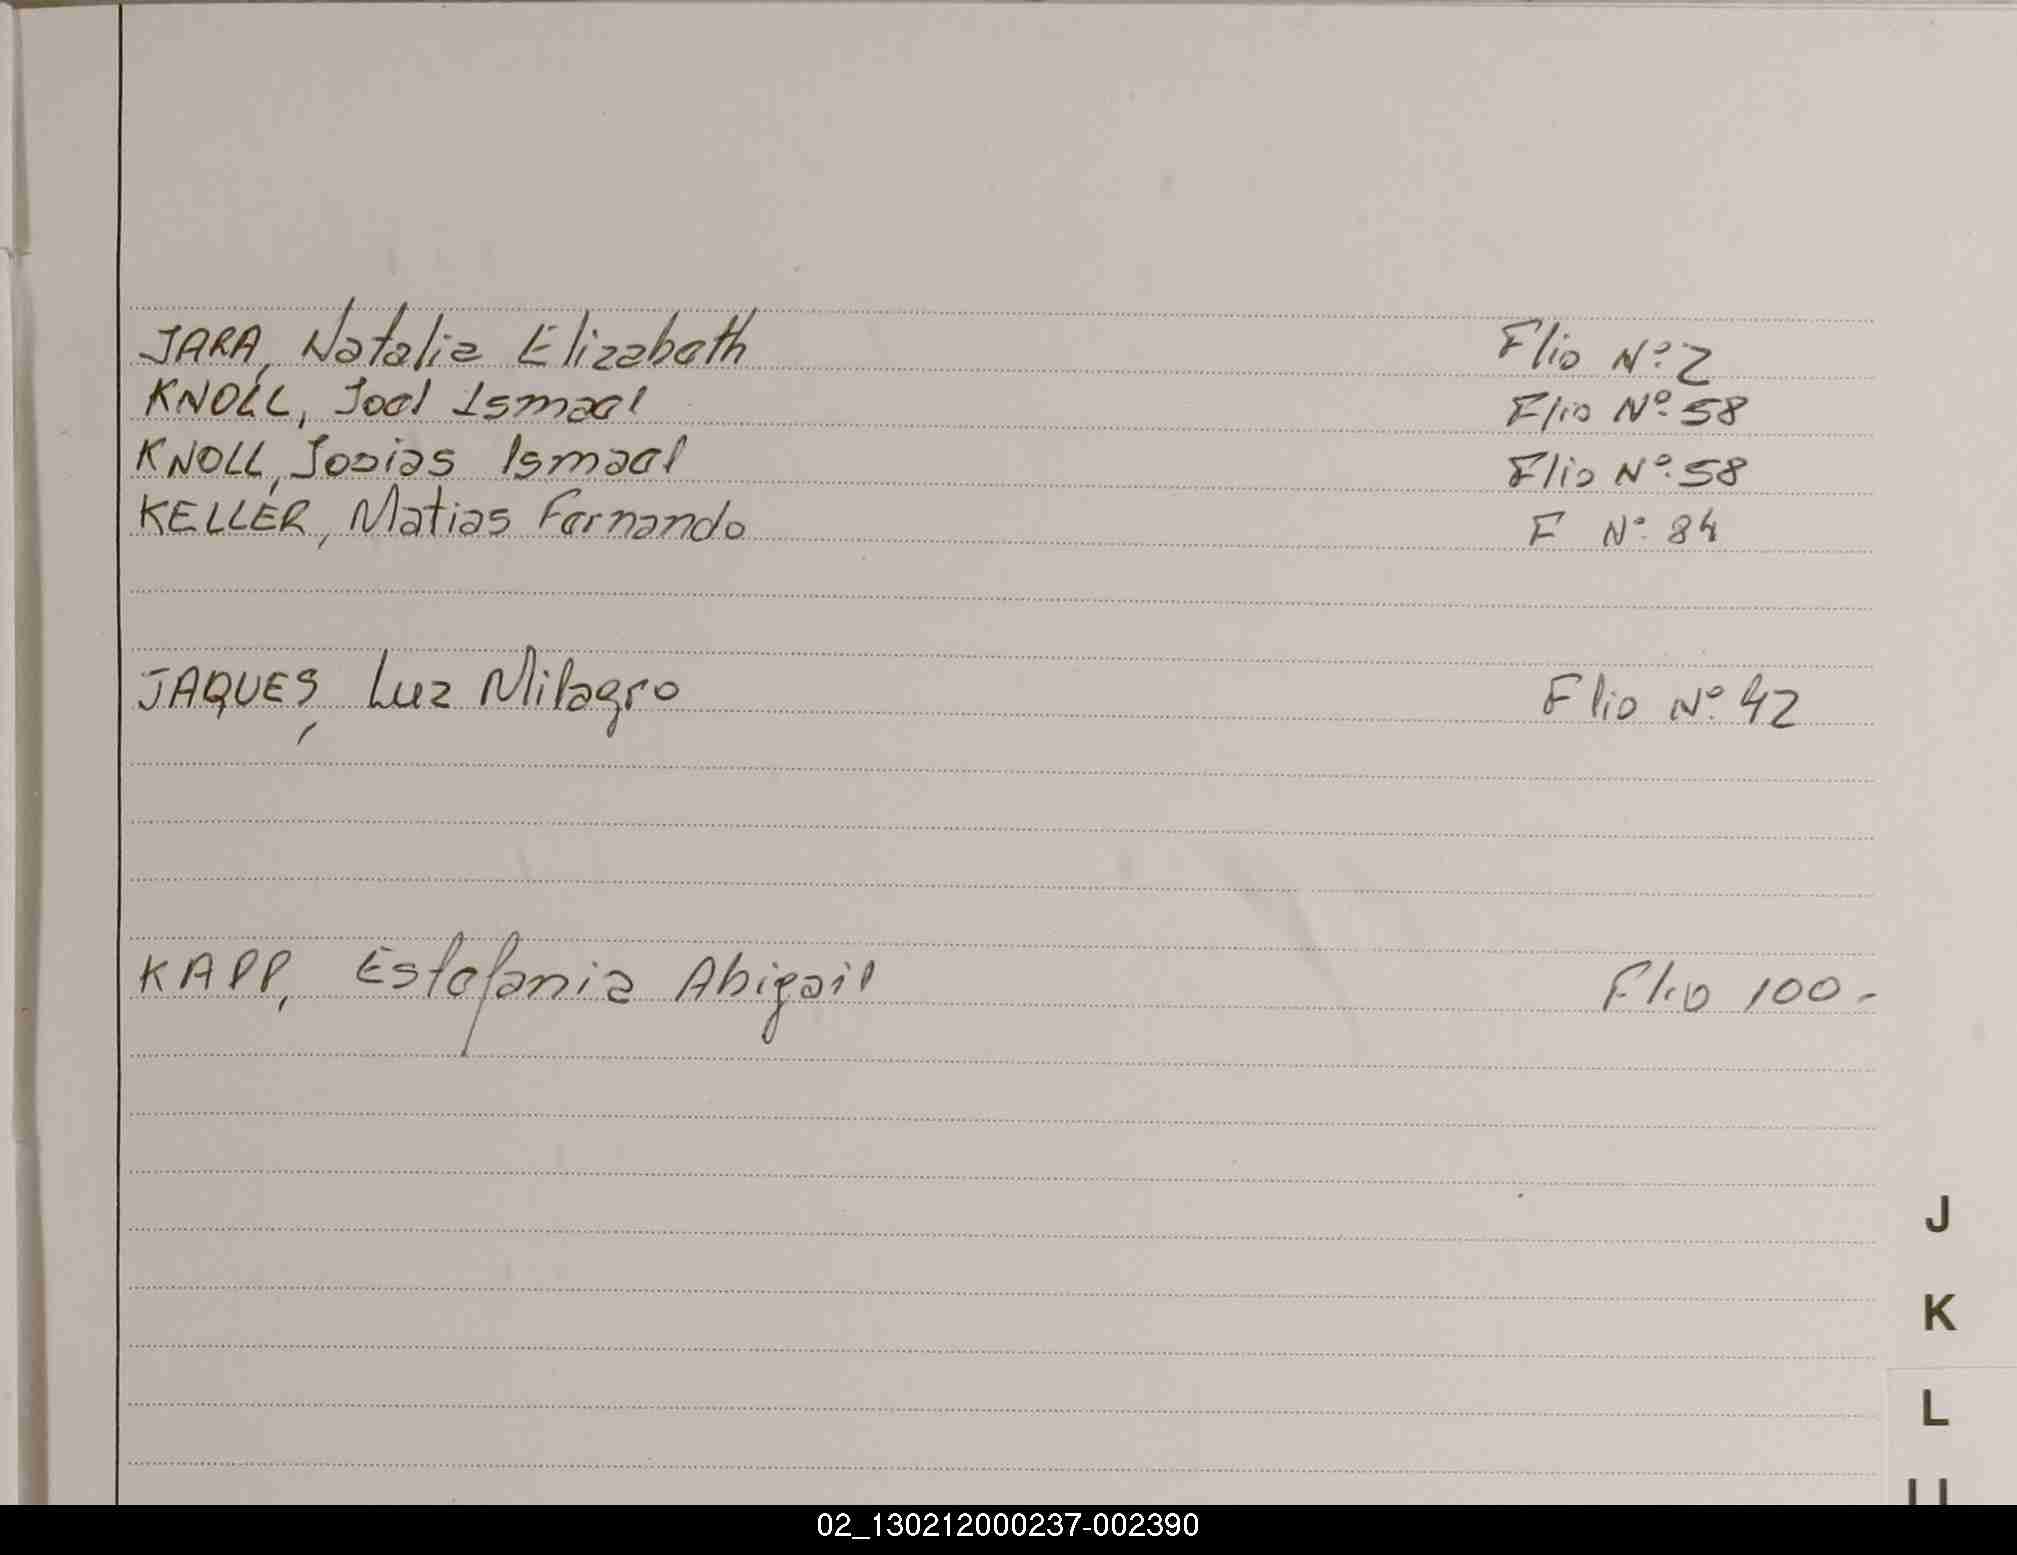 JARA, Natalia Elizabeth Flio Nº 2
KNOLL, Joel Ismael Flio Nº 58
KNOLL, Josias Ismael Flio Nº 58
KELLER, Matias Fernando F Nº 84
JAQUES, Luz Milagro Flio Nº 42
KAPP, Estefania Abigail Flio 100-
J
K
L
02_130212000237-002390